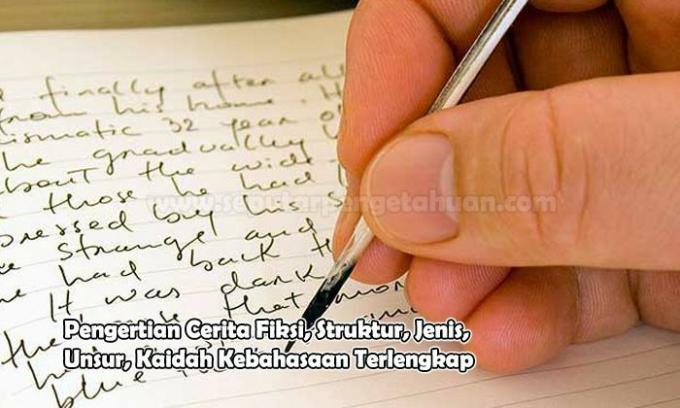 finally after all
from his home. H
ismatic 32 year o
he gradualley
bout the wide
those he had
www.seputarpengetahuan.com
pressed buy his
strange and
he had back
It was
the that
Pengertian Cerita Fiksi, Struktur, Jenis,
Unsur, Kaidah Kebahasaan Terlengkap
blue